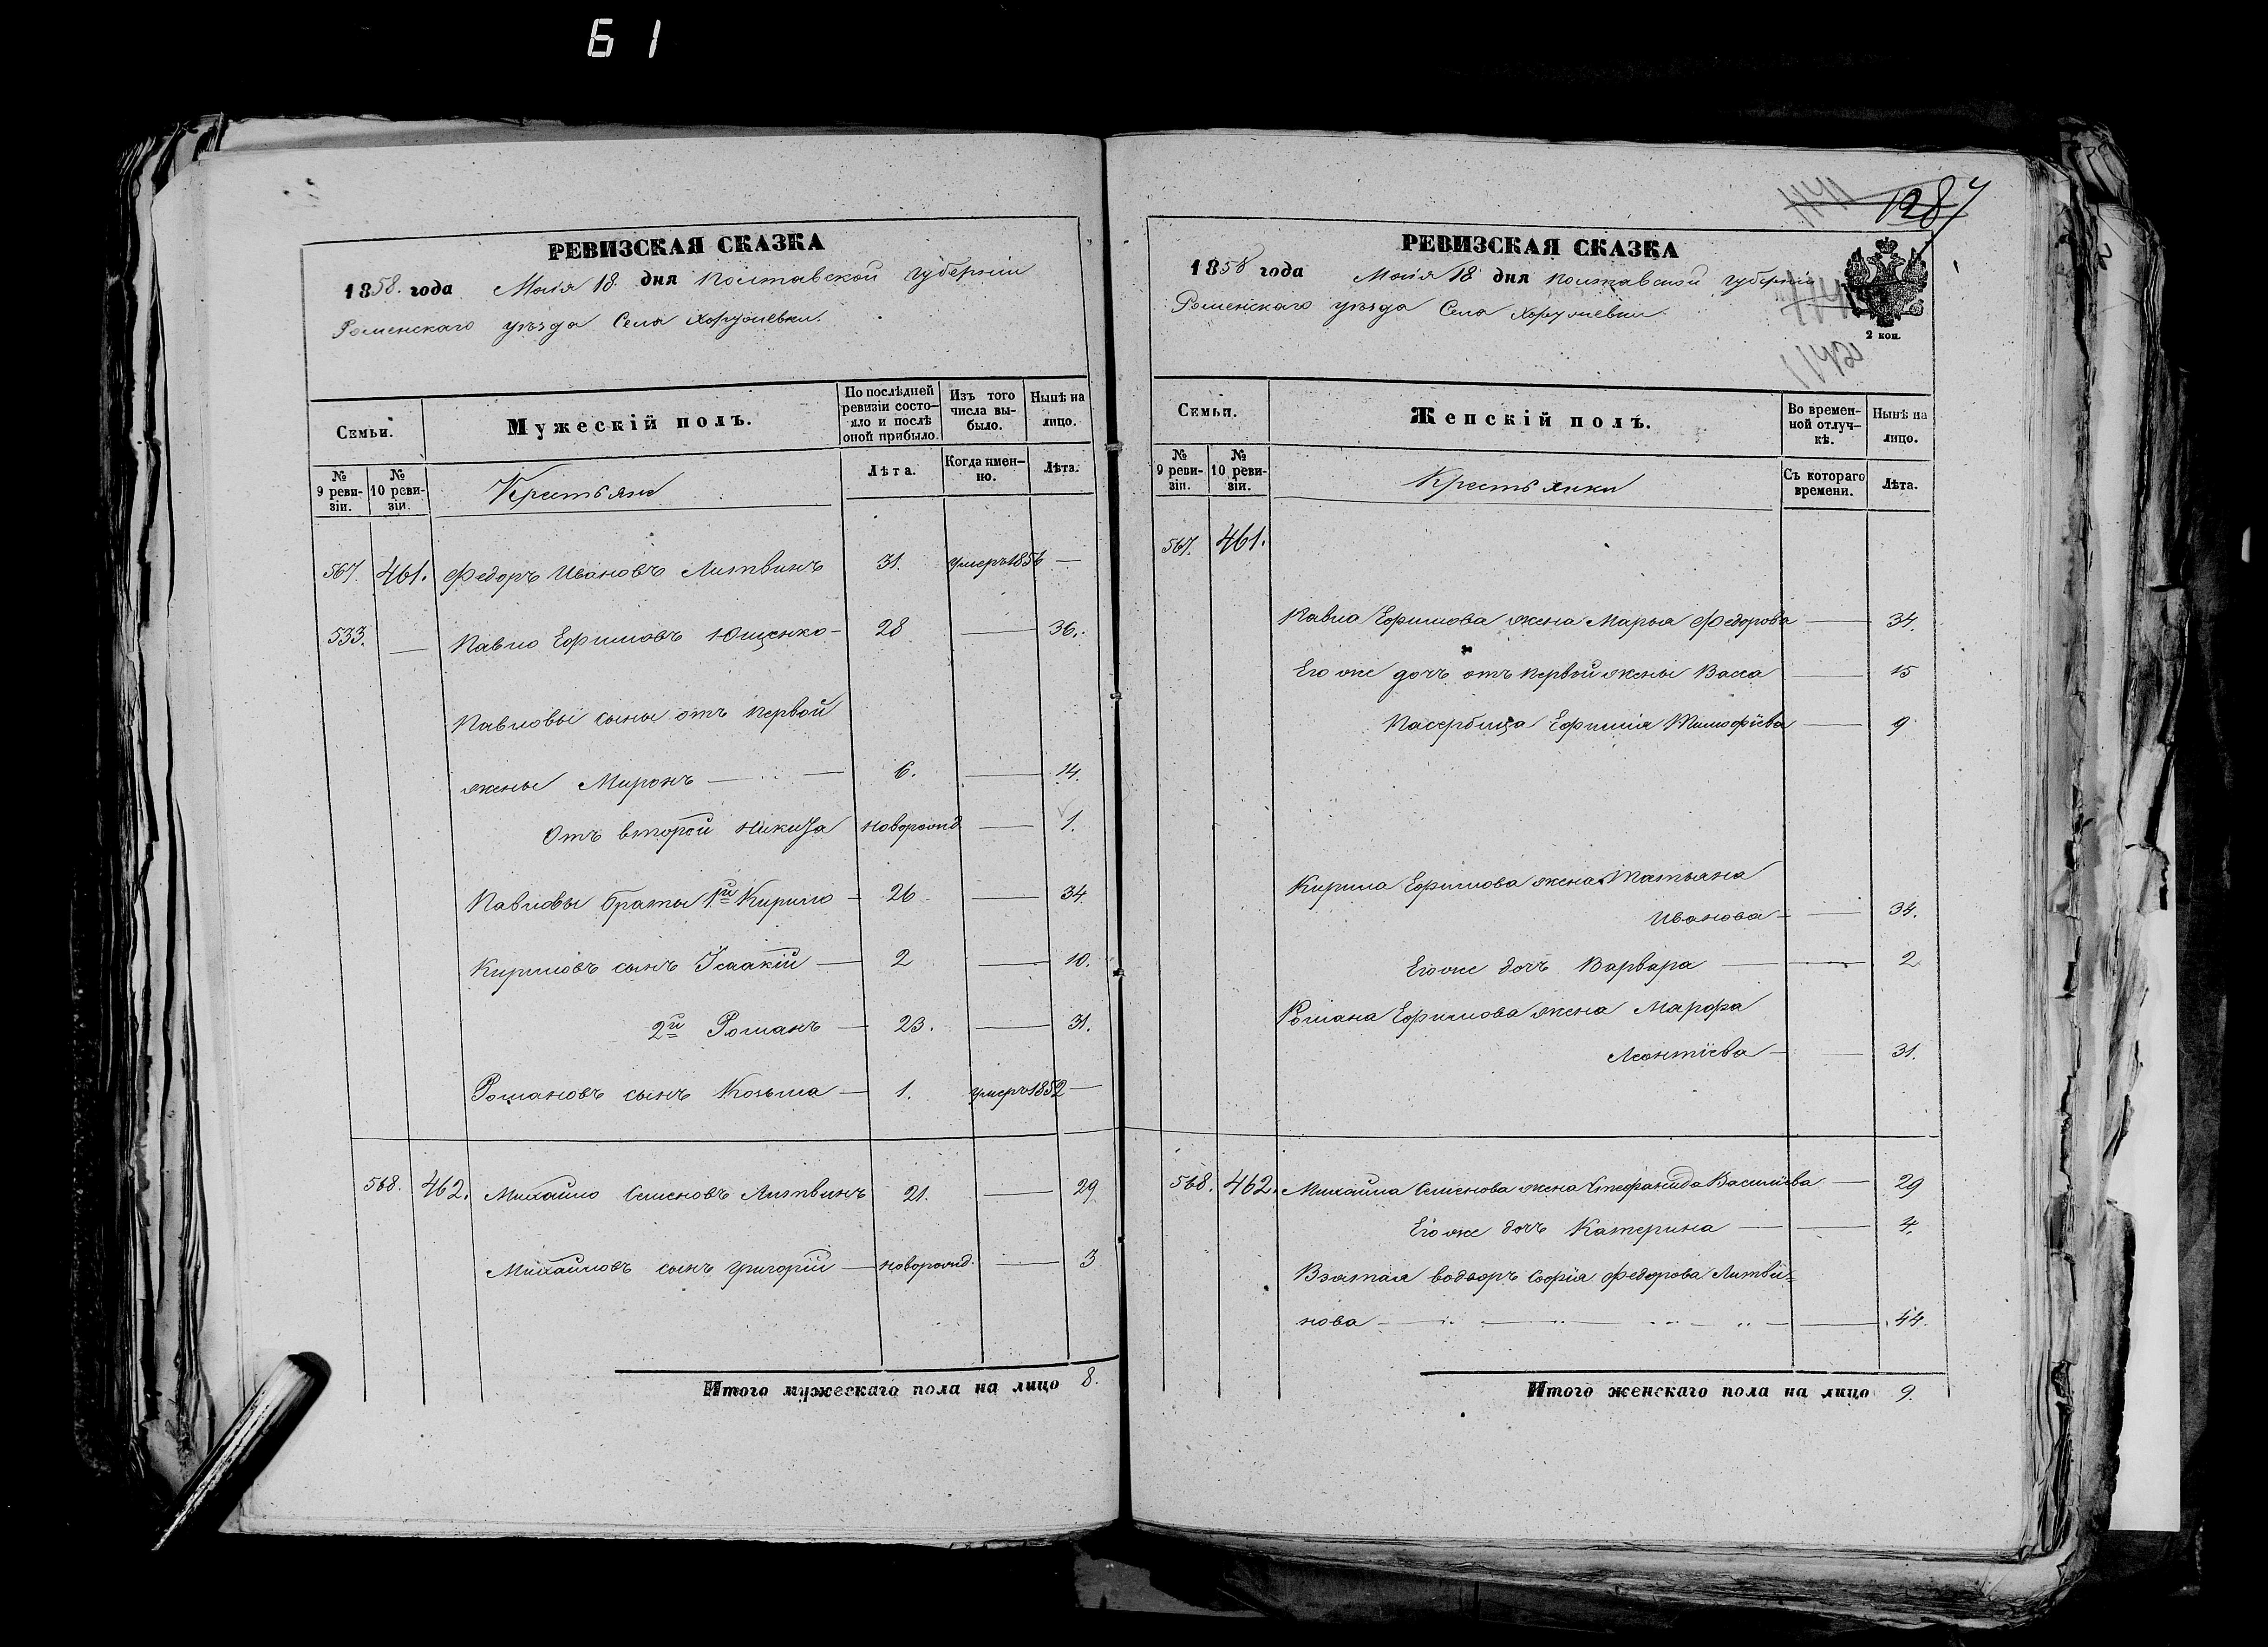 61
РЕВИЗСКАЯ СКАЗКА
1858. года Маія 18. дня Полтавской губерніи
Роменскаго уѣзда Села Хоружевки.
Семьи.
Мужескій полъ.
По послѣдней ревизіи состояло и послѣ оной прибыло.
Изъ того числа выбыло.
Нынѣ на лицо.
№ 9 ревизіи.
№ 10 ревизіи.
Крестьяне
Лѣта.
Когда именно.
Лѣта.
567. 461. Федоръ Ивановъ Литвинъ 31. умеръ 1856 —
533. — Павло Ефимовъ Ющенко — 28 — 36.
Павловы сыны отъ первой
жены Миронъ — 6. — 14.
Отъ второй Никита новорожд — 1.
Павловы браты 1й Кирило — 26 — 34.
Кириловъ сынъ Ісаакій — 2 — 10.
2й Романъ — 23. — 31.
Романовъ сынъ Козьма — 1. умеръ 1852 —
568. 462. Михайло Семеновъ Литвинъ 21. — 29
Михайловъ сынъ Григорій — новорожд. — 3
Итого мужескаго пола на лицо 8.
1287
РЕВИЗСКАЯ СКАЗКА
1858 года Маія 18 дня Полтавской губерніи
Роменскаго уѣзда Села Хоружевки.
2 коп.
Семьи.
Женскій полъ.
Во временной отлучкѣ.
Нынѣ на лицо.
№ 9 ревизіи.
№ 10 ревизіи.
Крестьянки
Съ котораго времени.
Лѣта.
567. 461.
Павла Ефимова жена Марья Федорова — 34.
Его же дочь отъ первой жены Васса — 15
Пасербица Ефимія Тимофіева — 9
Кирила Ефимова жена Татьяна
Иванова — 34.
Его же дочь Варвара — 2
Романа Ефимова жена Марфа
Леонтіева — 31.
568. 462. Михайла Семенова жена Стефанида Василіева — 29
Его же дочь Катерина — 4.
Взятая водворъ Софія Федорова Литви-
нова — 44.
Итого женскаго пола на лицо 9.